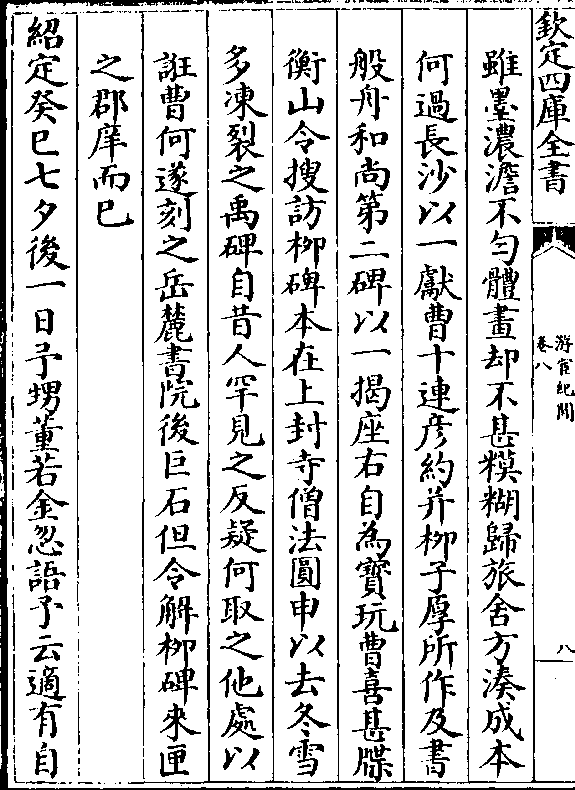 欽定四庫全書
游宦紀聞
卷八
八
雖墨濃澹不勻體畫却不甚糢糊歸旅舍方湊成本
何過長沙以一獻曹十連彦約并栁子厚所作及書
般舟和尚第二碑以一揭座右自為寳玩曹喜甚牒
衡山令搜訪栁碑本在上封寺僧法圓申以去冬雪
多凍裂之禹碑自昔人罕見之反疑何取之他處以
誑曹何遂刻之岳麓書院後巨石但令解栁碑來匣
之郡庠而已
紹定癸巳七夕後一日予甥董若金忽語予云適有自